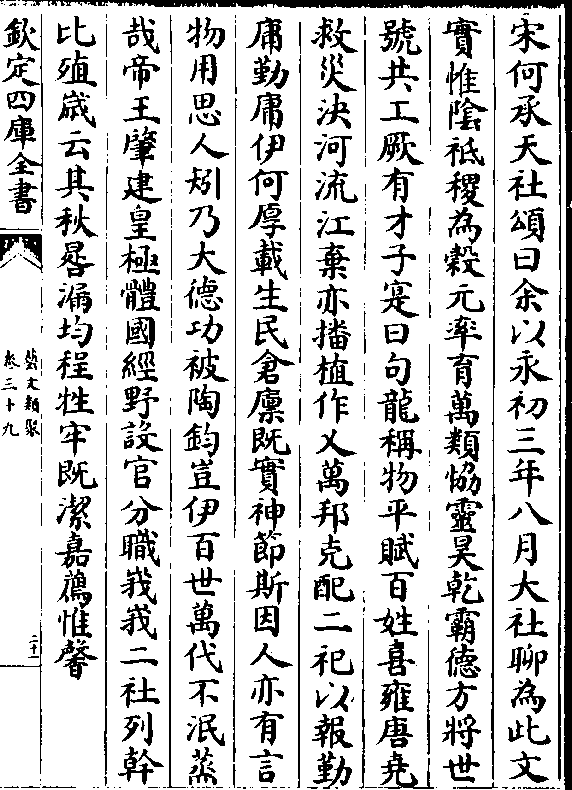 宋何承天社頌曰余以永初三年八月大社聊為此文
實惟隂祗稷為榖元率育萬類協靈昊乾霸德方將世
號共工厥有才子寔曰句龍稱物平賦百姓喜雍唐堯
救災決河流江棄亦播植作乂萬邦克配二祀以報勤
庸勤庸伊何厚載生民倉廩既實神節斯因人亦有言
物用思人矧乃大德功被陶鈞豈伊百世萬代不泯蒸
哉帝王肇建皇極體國經野設官分職峩峩二社列幹
比殖嵗云其秋晷漏均程牲牢既潔嘉薦惟馨
欽定四庫全書
藝文類聚
卷三十九
二十一